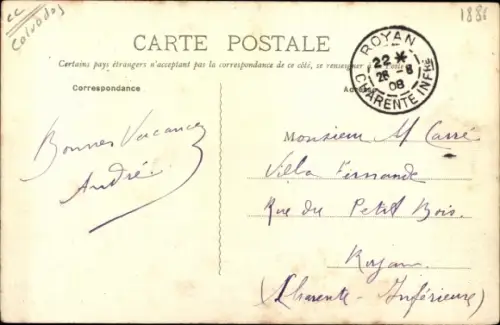 cc
Calvados
1886
CARTE POSTALE
Certains pays étrangers n'acceptant pas la correspondance de ce côté, se renseigner à la Poste
Correspondance
Adresse
ROYAN
22 *
26 - 8
08
CHARENTE INFRE
Bonnes Vacances
André
Monsieur M Carré
Villa Fernande
Rue du Petit Bois.
Royan
(Charente-Inférieure)